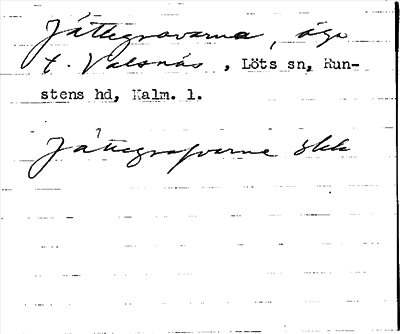 Jättegravarna, äga
t. Valsnäs, Löts sn, Run-
stens hd, Kalm. l.
Jättegrafvarne